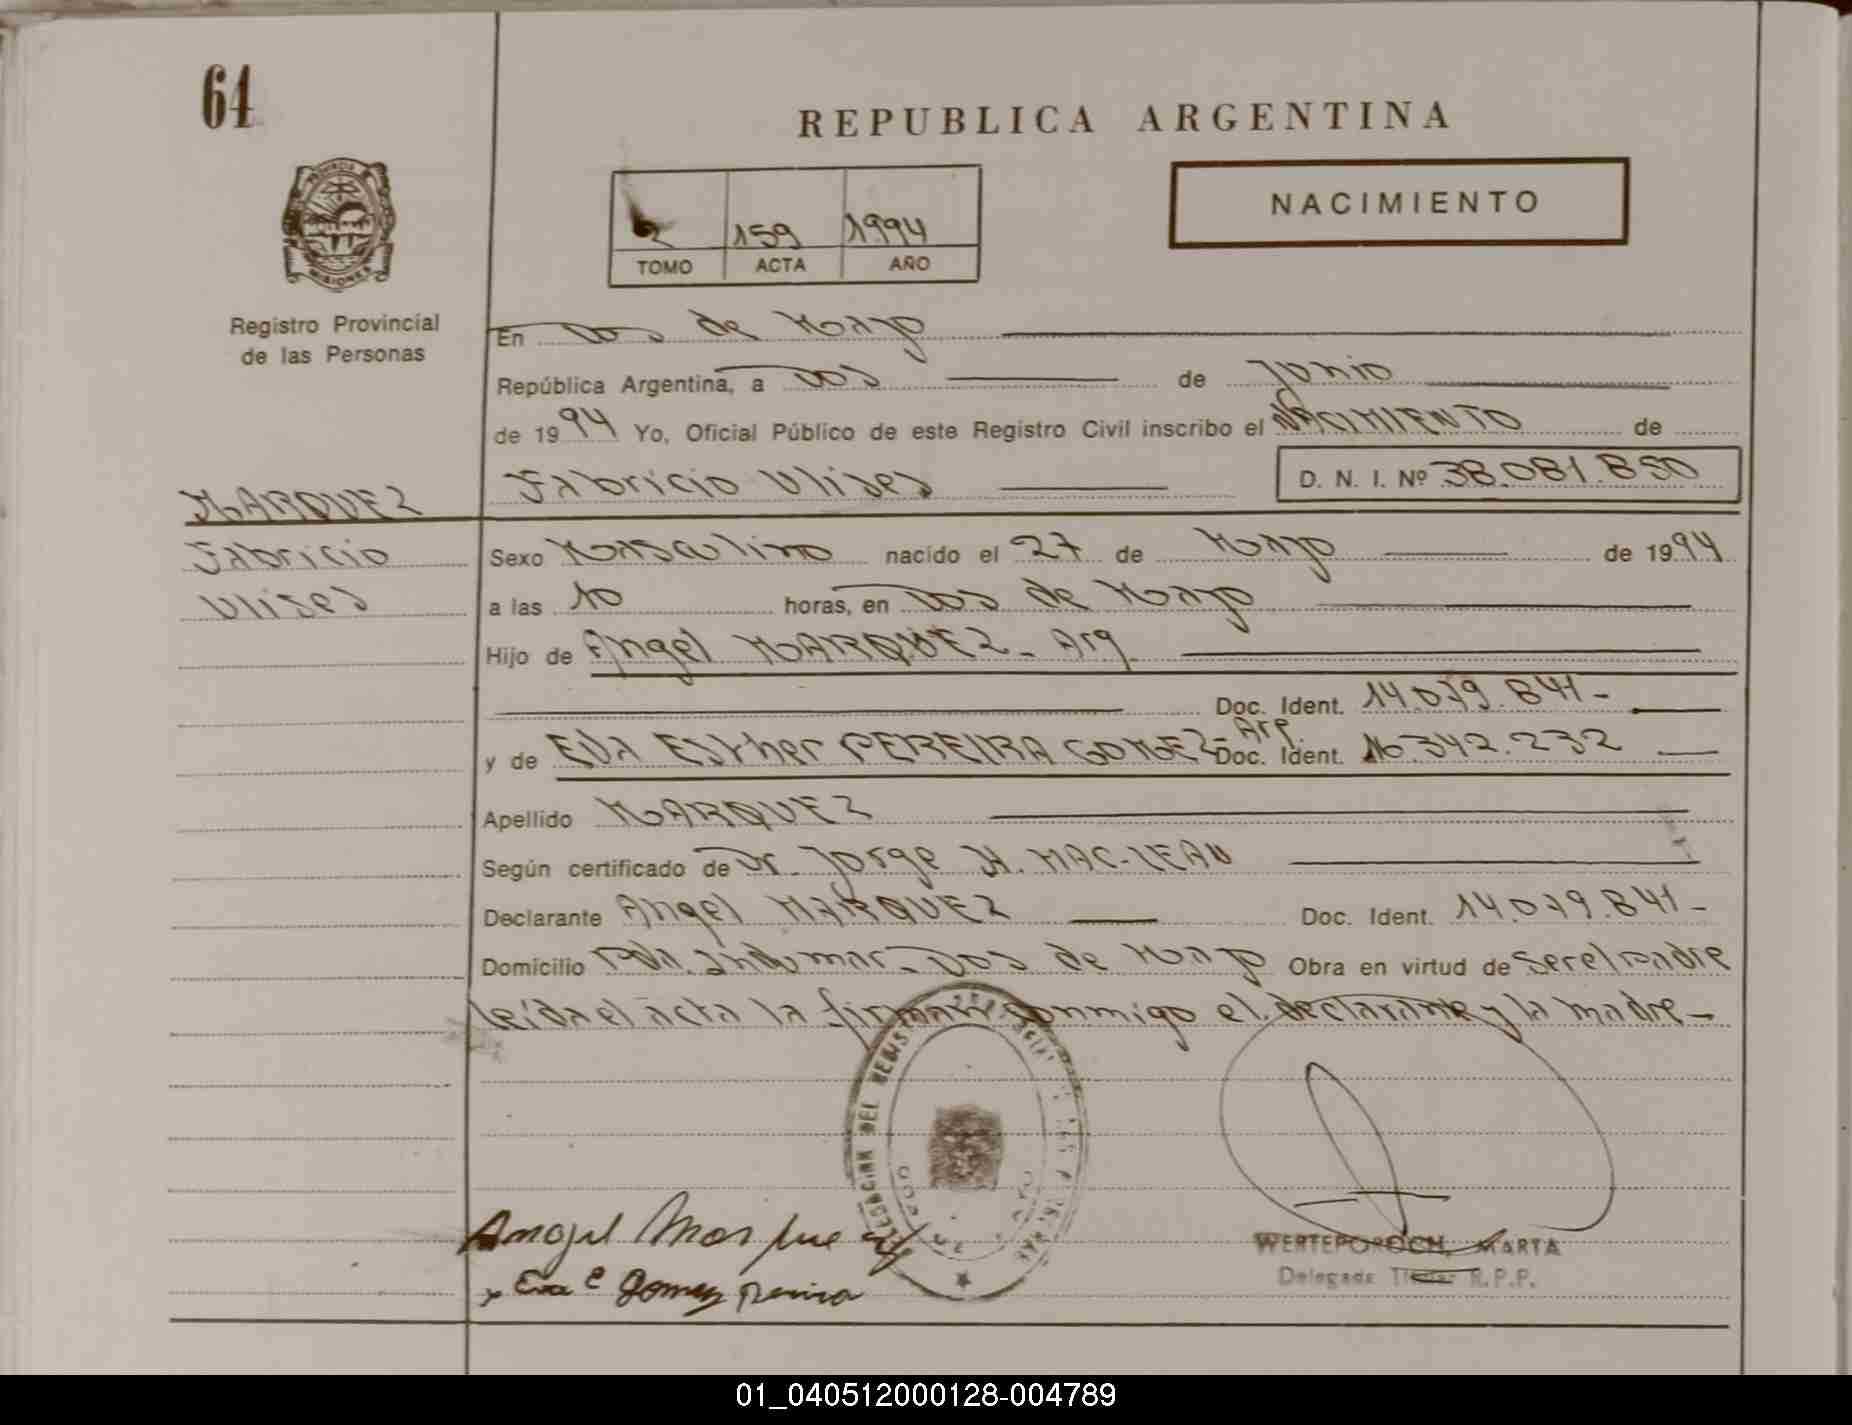 64
REPUBLICA ARGENTINA
PROVINCIA
MISIONES
NACIMIENTO
159 1994
TOMO ACTA AÑO
Registro Provincial
de las Personas
En Dos de Mayo
República Argentina, a Dos de Junio
de 1994 Yo, Oficial Público de este Registro Civil inscribo el NACIMIENTO de
Fabricio Ulises D. N. I. Nº 38.081.850
MARQUEZ
Fabricio
Ulises
Sexo Masculino nacido el 27 de Mayo de 1994
a las 10 horas, en Dos de Mayo
Hijo de Angel MARQUEZ - Arg.
Doc. Ident. 14.079.841-
y de Eva Esther PEREIRA GOMEZ - Arg. Doc. Ident. 16.342.232
Apellido MARQUEZ
Según certificado de Dr. Jorge H. MAC-LEAN
Declarante Angel MARQUEZ Doc. Ident. 14.079.841-
Domicilio Pda. - Dos de Mayo Obra en virtud de ser el padre
leída el acta la firman conmigo el declarante y la madre-
DEL
Angel Marquez
Eva E Gomez Pereira
MARTA
R.P.P.
01_040512000128-004789